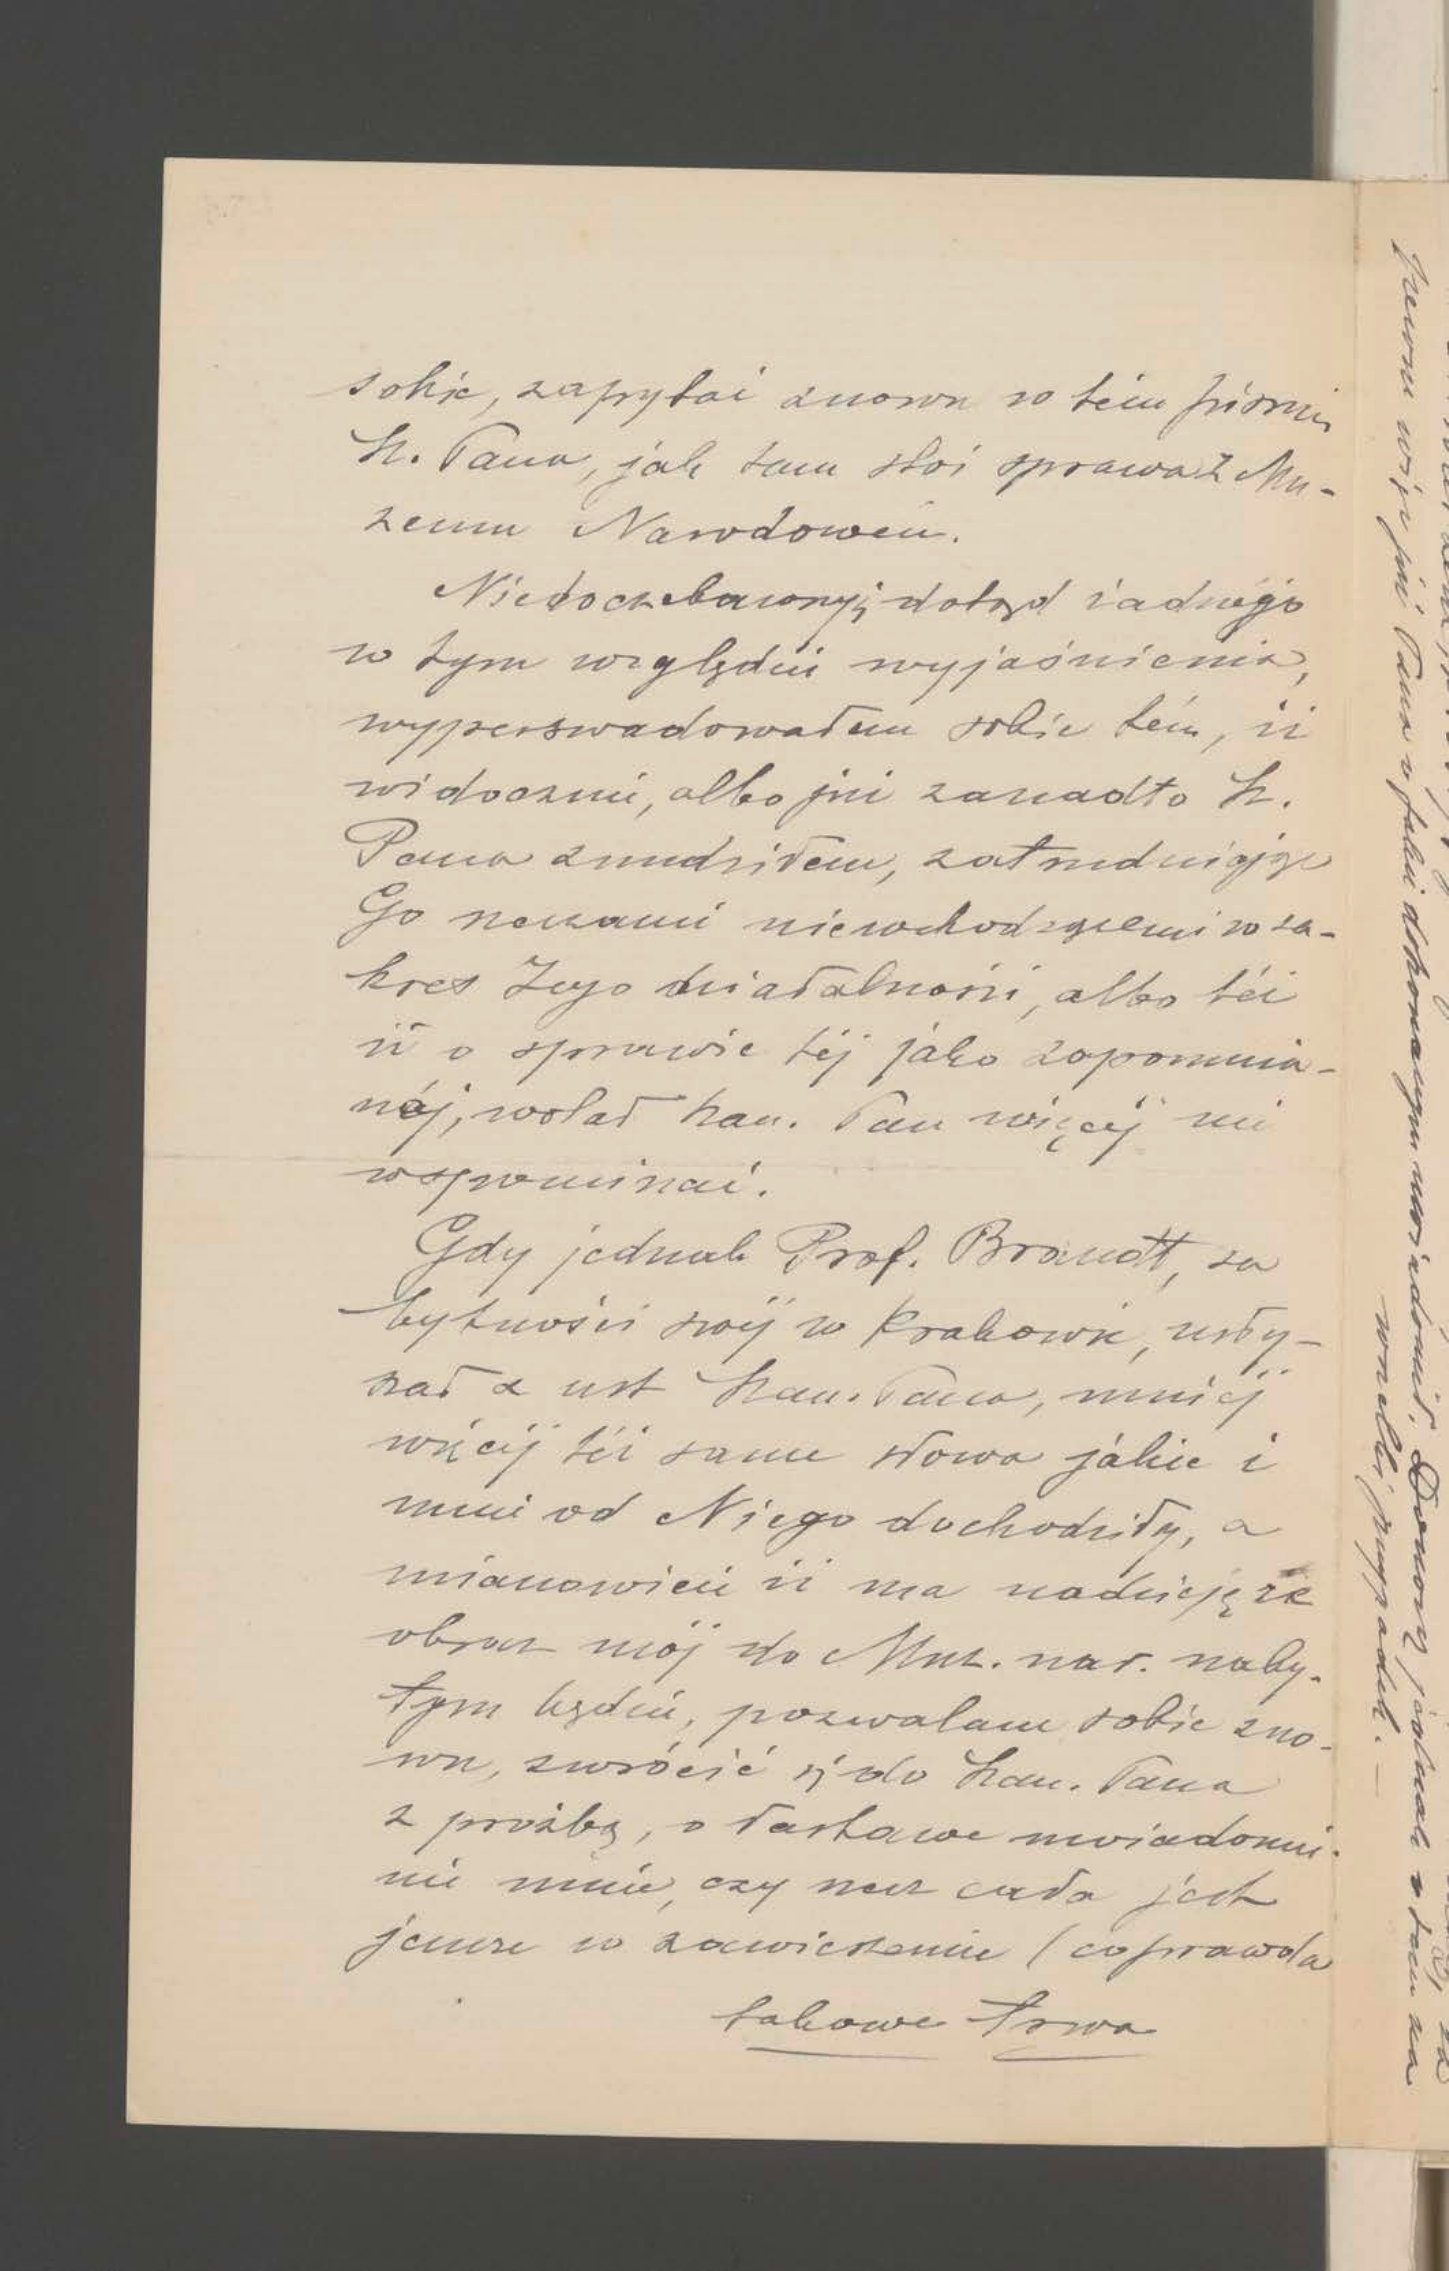 sobie, zapytać znowu w tém piśmie
Sz. Pana, jak tam stoi sprawa z Mu-
zeum Narodowém.
Niedoczekawszy się dotąd żadnégo
w tym względzie wyjaśnienia,
wyperswadowałem sobie tém, iż
widocznie, albo już zanadto Sz.
Pana znudziłem, zatrudniając
Go rzeczami niewchodzącemi w za-
kres Jego działalności, albo téż
iż o sprawie téj jako zapomnia-
néj, wolał Szan. Pan więcéj nie
wspominać.
Gdy jednak Prof. Brandt, za
bytności swéj w Krakowie, usły-
szał z ust Szan. Pana, mniéj
więcéj téż same słowa jakie i
mnie od Niego dochodziły, a
mianowicie iż ma nadzieję że
obraz mój do Muz. nar. naby-
tym będzie, pozwalam sobie zno-
wu, zwrócić się do Szan. Pana
z prośbą, o łaskawe uwiadomie-
nie mnie, czy rzecz cała jest
jeszcze w zawieszeniu (coprawda
takowe trwa
więc już Pana o fakcie dokonanym uwiadomić. Donoszę jednak o tem na
wszelki przypadek. —